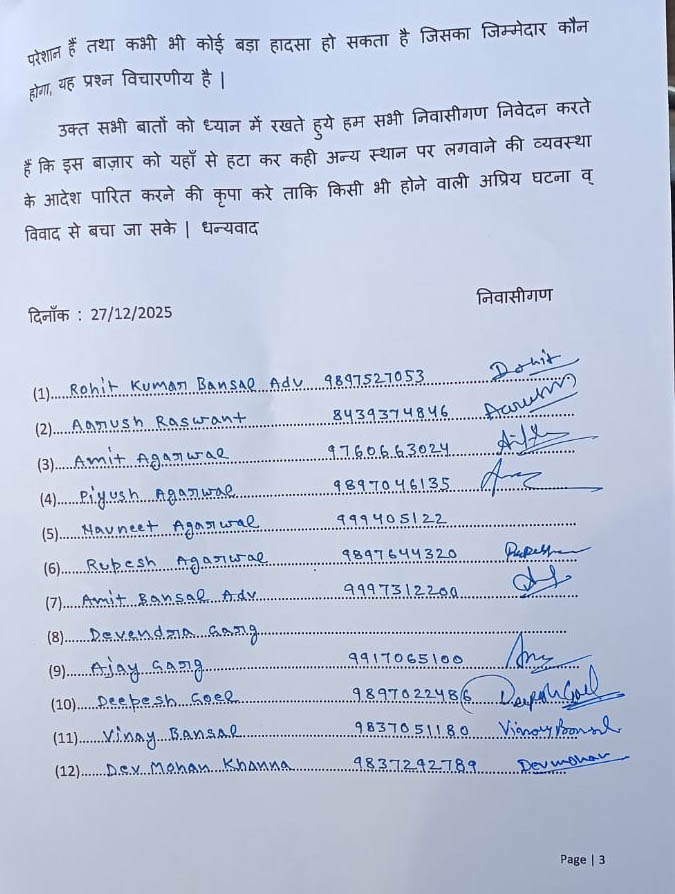 परेशान हैं तथा कभी भी कोई बड़ा हादसा हो सकता है जिसका जिम्मेदार कौन
होगा, यह प्रश्न विचारणीय है |
उक्त सभी बातों को ध्यान में रखते हुये हम सभी निवासीगण निवेदन करते
हैं कि इस बाज़ार को यहाँ से हटा कर कही अन्य स्थान पर लगवाने की व्यवस्था
के आदेश पारित करने की कृपा करे ताकि किसी भी होने वाली अप्रिय घटना व्
विवाद से बचा जा सके | धन्यवाद
दिनाँक : 27/12/2025 निवासीगण
(1) Rohit Kumar Bansal Adv 9897527053 Rohit
(2) Aarush Raswant 8439374846
(3) Amit Agarwal 9760663024
(4) Piyush Agarwal 9897046135
(5) Navneet Agarwal 999405122
(6) Rupesh Agarwal 9897644320
(7) Amit Bansal Adv 9997312200
(8) Devendra Garg
(9) Ajay Garg 9917065100
(10) Deepesh Goel 9897022486
(11) Vinay Bansal 9837051180 Vinay Bansal
(12) Dev Mohan Khanna 9837292789 Devmohan
Page | 3